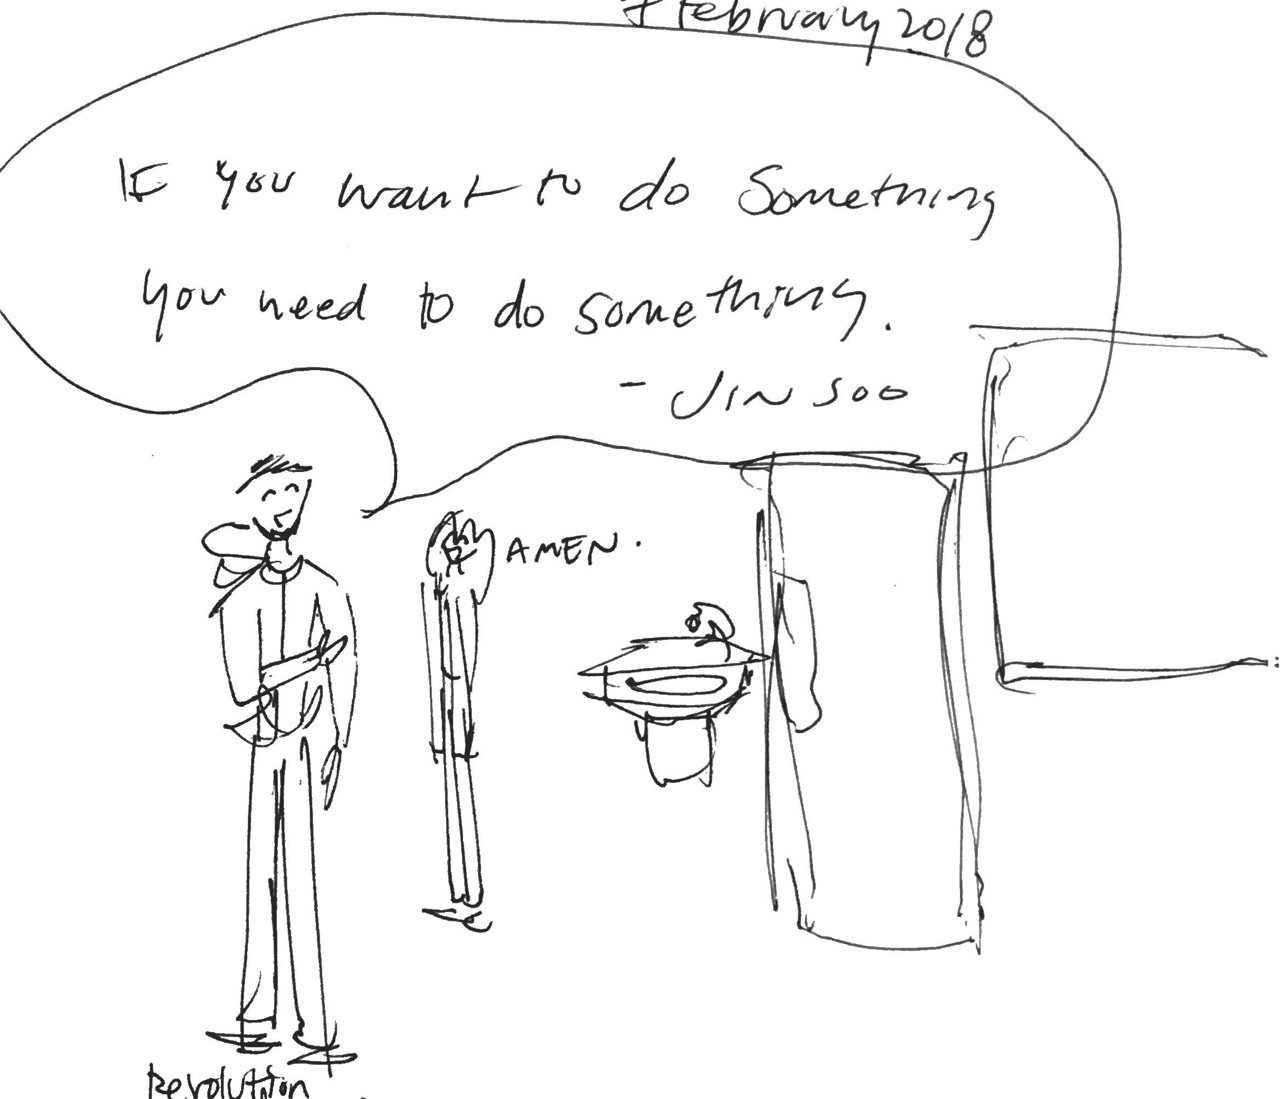 7 February 2018
IF you want to do something
you need to do something.
- JIN SOO
AMEN.
Revolution